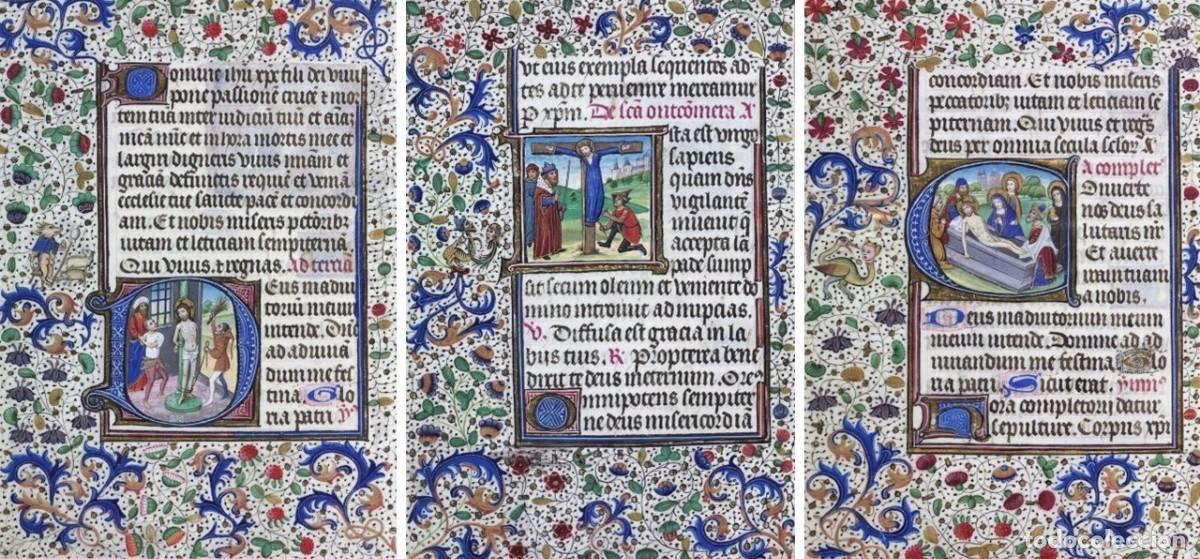 Domine ihu xpe fili dei vivi
pone passione cruce et mor
tem tua inter iudiciu tuu et aiam
mea nuc et in hora mortis mee et
largiri digneris vivis mam et
gracia defunctis requie et venia
ecclesie tue sancte pace et concordi
am. Et nobis miseris pctoribz
vitam et leticiam sempiterna
Qui vivis. et regnas. Ad tercia
Deus in adiu
toriu meum
intende. Dne
ad adiuva
dum me fes
tina. Glo
ria patri
ut eius exempla sequentes ad
tes ad te pervenire mereamur
P xpm. De sca
Ista est virgo
sapiens
quam dns
vigilante
invenit q
accepta la
pade sump
sit secum oleum et veniente do
mino introivit ad nupcias.
V. Diffusa est gracia in la
biis tuis. R Propterea bene
dixit te deus in eternum. Ore
Omnipotens sempiter
ne deus misericordia
concordiam. Et nobis miseris
peccatoribz vitam et leticiam se
piternam. Qui vivis et regs
deus per omnia secula selor A
A complet
Onverte
nos deus sa
lutaris nr
Et averte
iram tuam
a nobis.
Deus in adiutorium meum
meum intende. Domine ad ad
iuvandum me festina
ria patri Sicut erat. ymn
Hora completorij datur
sepulture. Corpus xpi
todocoleccion